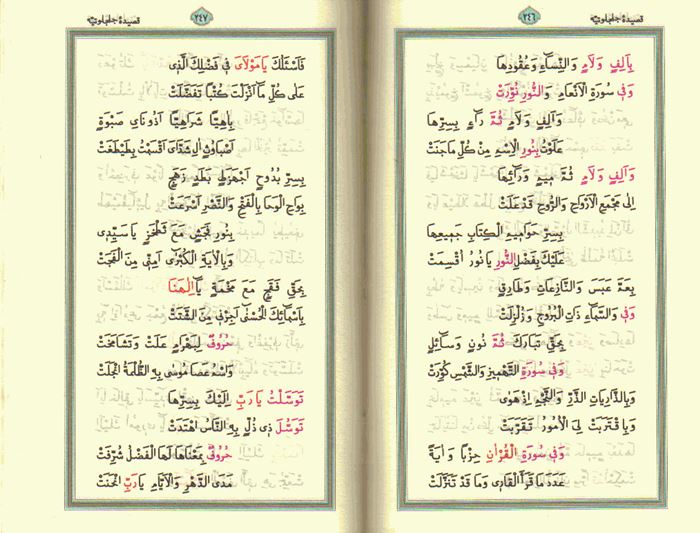 قصيدۀ جلجلوتيه
٢٤٦
بِاَلِفٍ وَلَامٍ وَالنِّسَاءِ وَعُقُودِهَا
وَفِى سُورَةِ الْاَنْعَامِ وَالنُّورِ نُوِّرَتْ
وَاَلِفٍ وَلَامٍ ثُمَّ رَاءٍ بِسِرِّهَا
عَلَوْتُ بِنُورِ الْاِسْمِ مِنْ كُلِّ مَا جَنَتْ
وَاَلِفٍ وَلَامٍ ثُمَّ مِيمٍ وَرَائِهَا
اِلٰى مَجْمَعِ الْاَرْوَاحِ وَالرُّوحُ قَدْ عَلَتْ
بِسِرِّ حَوَامِيمِ الْكِتَابِ جَمِيعِهَا
عَلَيْكَ بِفَضْلِ النُّورِ يَا نُورُ اُقْسِمَتْ
بِعَمَّ عَبَسَ وَالنَّازِعَاتِ وَطَارِقٍ
وَفِى وَالسَّمَاءِ ذَاتِ الْبُرُوجِ وَزُلْزِلَتْ
بِحَقِّ تَبَارَكَ ثُمَّ نُونٍ وَسَائِلٍ
وَفِى سُورَةِ التَّهْمِيزِ وَالشَّمْسُ كُوِّرَتْ
وَبِالذَّارِيَاتِ الذَّرِّ وَالنَّجْمِ اِذْ هَوٰى
وَبِاقْتَرَبَتْ لِىَ الْاُمُورُ تَقَرَّبَتْ
وَفِى سُوَرِ الْقُرْاٰنِ حِزْبًا وَاٰيَةً
عَدَدَ مَا قَرَاَ الْقَارِى وَمَا قَدْ تَنَزَّلَتْ
قصيدۀ جلجلوتيه
٢٤٧
فَاَسْئَلُكَ يَا مَوْلَاىَ فِى فَضْلِكَ الَّذِى
عَلٰى كُلِّ مَا اَنْزَلْتَ كُتْبًا تَفَضَّلَتْ
بِاٰهِيًّا شَرَاهِيًّا اَذُونَاىِ صَبْوَةٍ
اَصْبَاوُثٍ اٰلِ شَدَّاىَ اَقْسَمْتُ بِطَيْطَغَتْ
بِسِرِّ بُدُوحٍ اَجْهَزَطٍ بَطَدٍ زَهَجٍ
بِوَاحِ الْوَحَا بِالْفَتْحِ وَالنَّصْرِ اَسْرَعَتْ
بِنُورِ فَجَشٍ مَعَ ثَظْخَزٍ يَا سَيِّدِى
وَبِالْاٰيَةِ الْكُبْرٰى اَمِنِّى مِنَ الْفَجَتْ
بِحَقِّ فَقَجٍ مَعَ مَخْمَةٍ يَا اِلٰهَنَا
بِاَسْمَائِكَ الْحُسْنٰى اَجِرْنِى مِنَ الشَّتَتْ
حُرُوفٌ لِبَهْرَامٍ عَلَتْ وَتَشَامَخَتْ
وَاسْمُ عَصَا مُوسٰى بِهِ الظُّلْمَةُ انْجَلَتْ
تَوَسَّلْتُ يَا رَبِّ اِلَيْكَ بِسِرِّهَا
تَوَسُّلَ ذِى ذُلٍّ بِهِ النَّاسُ اهْتَدَتْ
حُرُوفٌ بِمَعْنَاهَا لَهَا الْفَضْلُ شُرِّفَتْ
مَدَى الدَّهْرِ وَالْاَيَّامِ يَا رَبِّ انْحَنَتْ